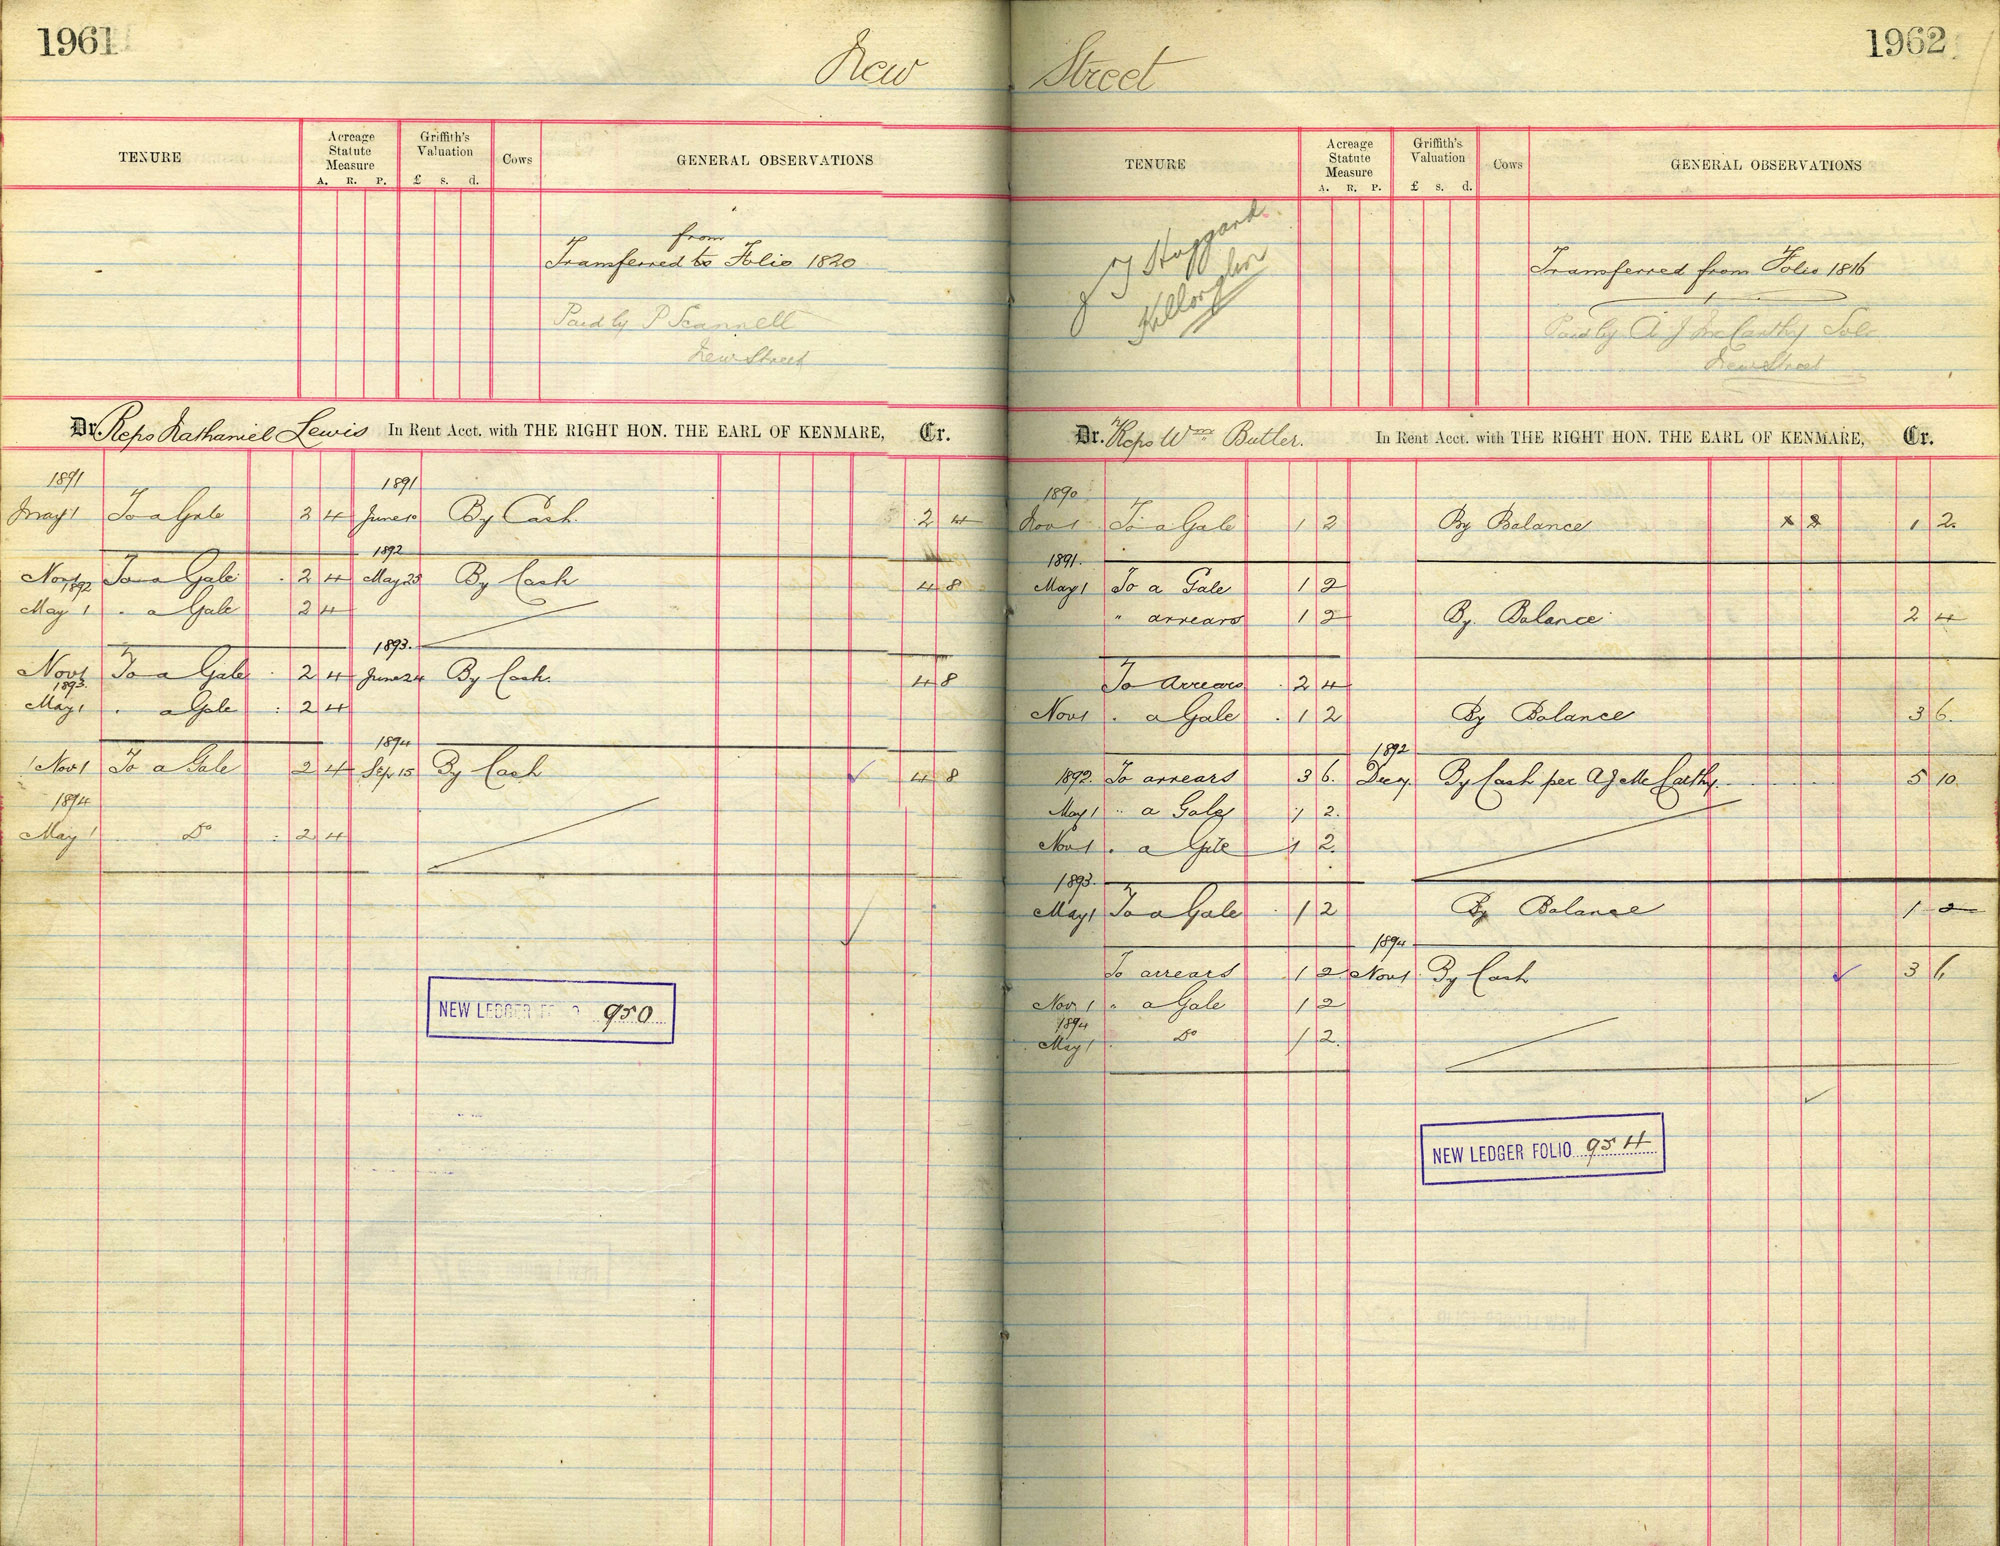 1961
New
TENURE
Acreage
Statute
Measure
A. R. P.
Griffith's
Valuation
£ s. d.
Cows
GENERAL OBSERVATIONS
from
Transferred to Folio 1820
Paid by P Scannell
New Street
Dr. Reps Nathaniel Lewis In Rent Acct. with THE RIGHT HON. THE EARL OF KENMARE, Cr.
1891 1891
May 1 To a Gale 2 4 June 10 By Cash 2 4
1892
Nov 1 To a Gale 2 4 May 23 By Cash 4 8
1892
May 1 " a Gale 2 4
1893
Nov 1 To a Gale 2 4 June 24 By Cash 4 8
1893
May 1 " a Gale 2 4
1894
Nov 1 To a Gale 2 4 Sep 15 By Cash 4 8
1894
May 1 Do 2 4
NEW LEDGER FOLIO 950
1962
Street
TENURE
Acreage
Statute
Measure
A. R. P.
Griffith's
Valuation
£ s. d.
Cows
GENERAL OBSERVATIONS
Haggard
Killorglin
Transferred from Folio 1816
Paid by A J McCarthy Solr
New Street
Dr. Reps Wm Butler. In Rent Acct. with THE RIGHT HON. THE EARL OF KENMARE, Cr.
1890
Nov 1 To a Gale 1 2 By Balance 1 2
1891
May 1 To a Gale 1 2
" arrears 1 2 By Balance 2 4
To Arrears 2 4
Nov 1 " a Gale 1 2 By Balance 3 6
1892
1892 To arrears 3 6 Dec 7 By Cash per A J McCarthy 5 10
May 1 " a Gale 1 2
Nov 1 " a Gale 1 2
1893
May 1 To a Gale 1 2 By Balance 1 2
1894
To arrears 1 2 Nov 1 By Cash 3 6
Nov 1 " a Gale 1 2
1894
May 1 Do 1 2
NEW LEDGER FOLIO 954